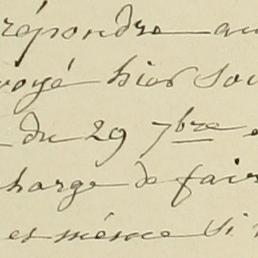 répondre au
voyé hier soi
du 29 7bre e
harge de fair
et même si